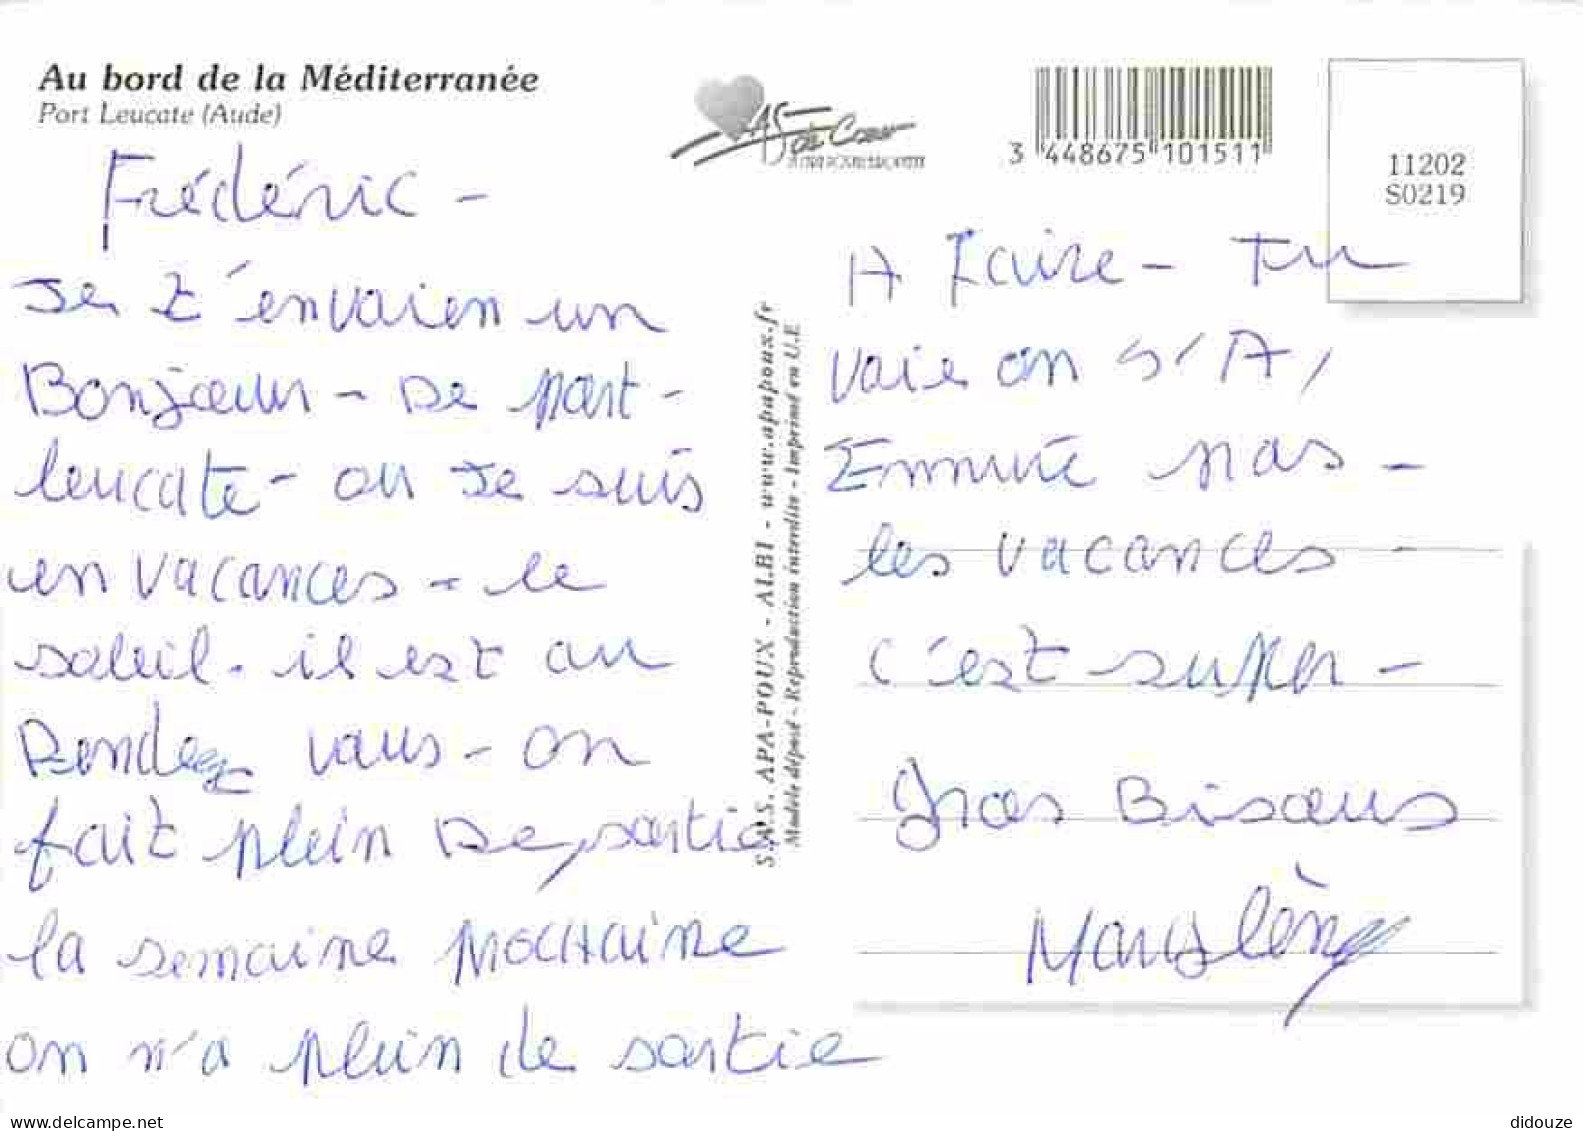 Au bord de la Méditerranée
Port Leucate (Aude)
As de Cœur
3 448675 101511
11202
S0219
Frédéric -
Je t'envaien un
Bonjœur - De port -
leucate - ou je suis
en vacances - le
soleil. il est au
Rendez vous - on
fait plein de sortie
la semaine prochaine
on n'a plein de sortie
S.A.S. APA-POUX - ALBI - www.apapoux.fr
Modèle déposé - Reproduction interdite - Imprimé en U.E
A Faire - Tu
vaie on s'A,
Ennuié pas -
les vacances -
c'est super -
Gros Bisous
Maryslène
www.delcampe.net
didouze